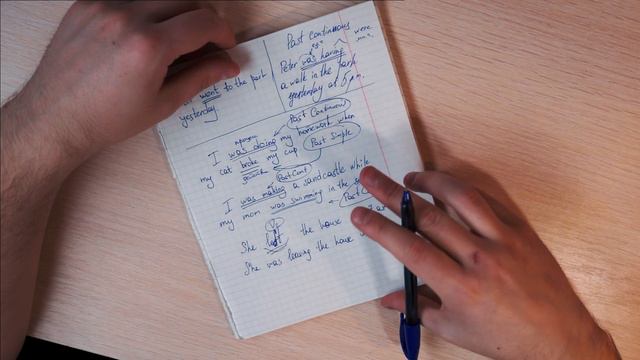 went to the park
yesterday.
Past Continuous
were
Peter was having
a walk in the Park
yesterday at 5 p.m.
Past Continuous
I was doing my homework when
Past Simple
my cat broke my cup
Past Cont
I was making a sandcastle while
my mom was swimming in the
Past
She left the house
She was leaving the house